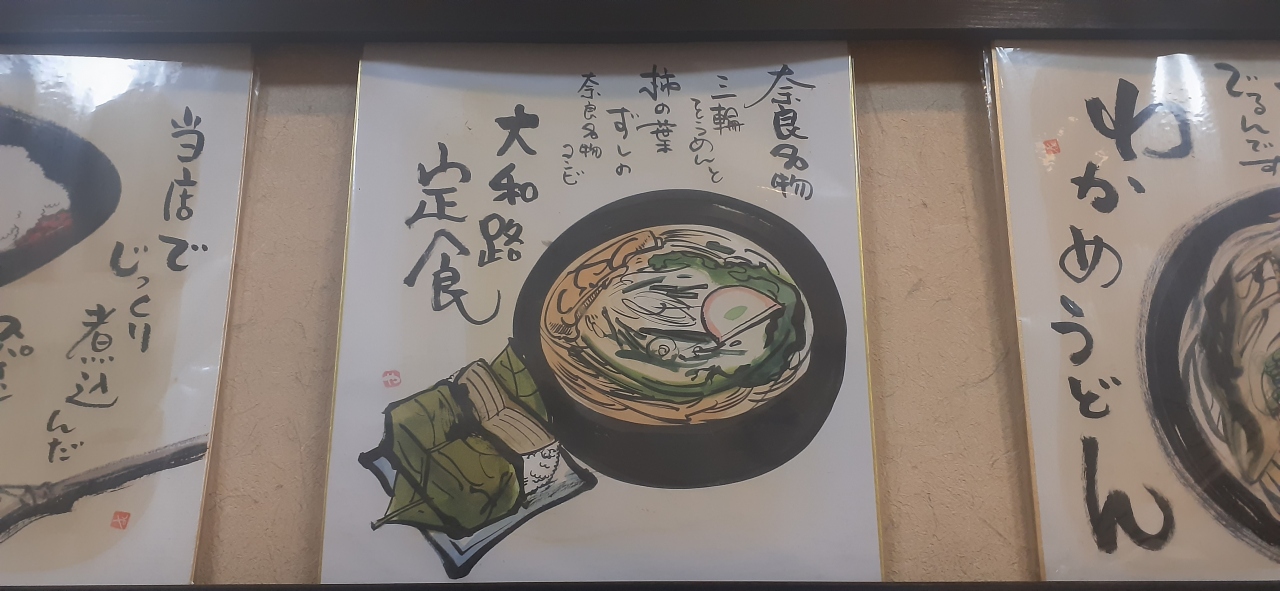 でるんです
わかめうどん
奈良名物
三輪
そうめんと
柿の葉
ずしの
奈良名物
コンビ
大和路
定食
当店で
じっくり
煮込
んだ